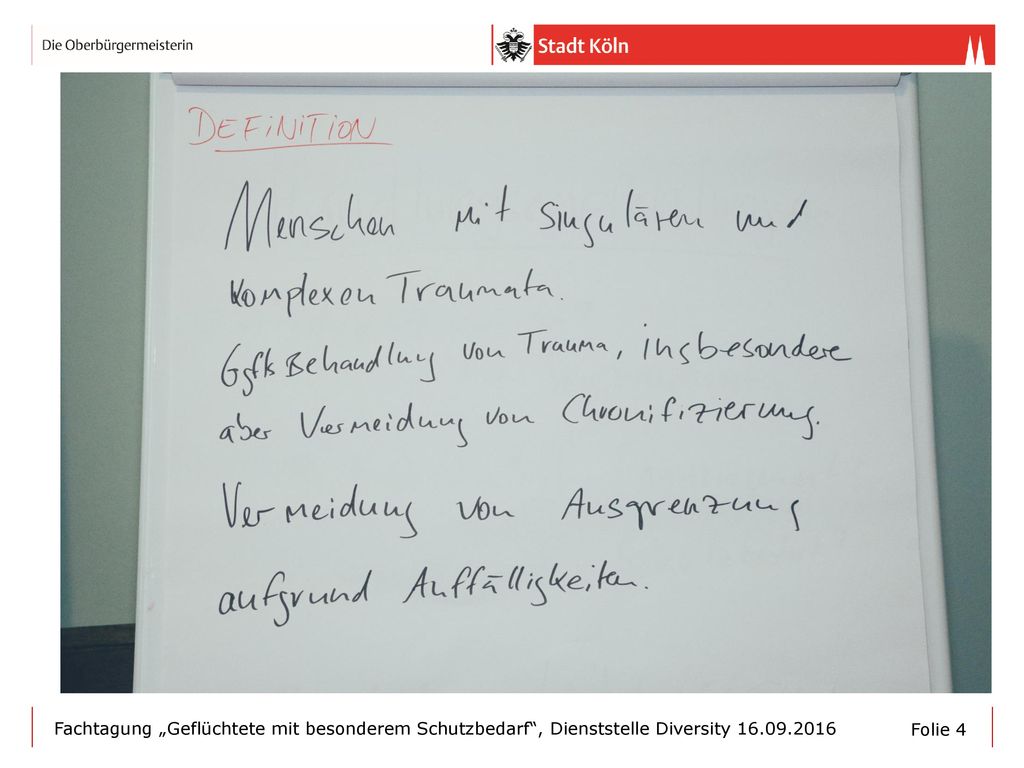 Die Oberbürgermeisterin
Stadt Köln
DEFINITION
Menschen mit singulären und
komplexen Traumata.
Ggfls Behandlung von Trauma, insbesondere
aber Vermeidung von Chronifizierung.
Vermeidung von Ausgrenzung
aufgrund Auffälligkeiten.
Fachtagung „Geflüchtete mit besonderem Schutzbedarf“, Dienststelle Diversity 16.09.2016
Folie 4